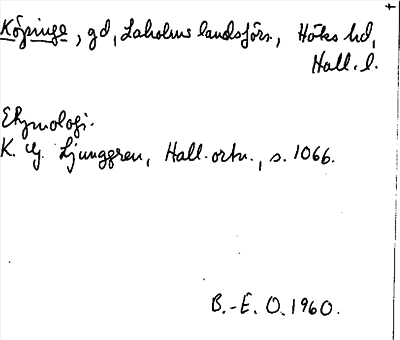 Köpinge, gd, Laholms landsförs., Höks hd,
Hall. l.
Etymologi.
K. G. Ljunggren, Hall. ortn., s. 1066.
B.-E. O. 1960.